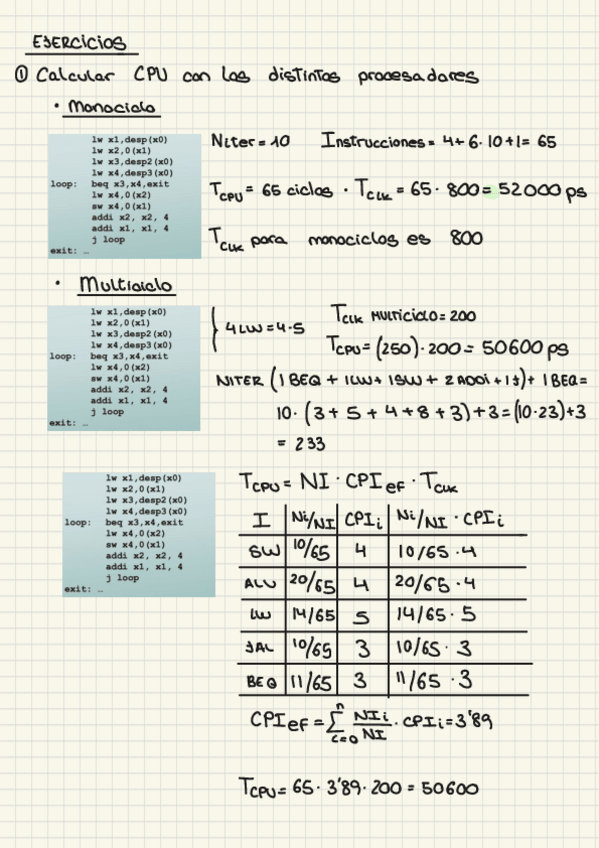 EJERCICIOS
① Calcular CPU con los distintos procesadores
• Monociclo
lw x1,desp(x0)
lw x2,0(x1)
lw x3,desp2(x0)
lw x4,desp3(x0)
loop: beq x3,x4,exit
lw x4,0(x2)
sw x4,0(x1)
addi x2, x2, 4
addi x1, x1, 4
j loop
exit: …
Niter = 10 Instrucciones = 4+6·10+1 = 65
TCPU = 65 ciclos · TCLK = 65 · 800 = 52000 ps
TCLK para monociclos es 800
• Multiciclo
lw x1,desp(x0)
lw x2,0(x1)
lw x3,desp2(x0)
lw x4,desp3(x0)
loop: beq x3,x4,exit
lw x4,0(x2)
sw x4,0(x1)
addi x2, x2, 4
addi x1, x1, 4
j loop
exit: …
4LW = 4·5
TCLK MULTICICLO = 200
TCPU = (250) · 200 = 50600 ps
NITER (1BEQ + 1LW + 1SW + 2ADDi + 1J) + 1BEQ =
10 · (3 + 5 + 4 + 8 + 3) + 3 = (10·23)+3
= 233
lw x1,desp(x0)
lw x2,0(x1)
lw x3,desp2(x0)
lw x4,desp3(x0)
loop: beq x3,x4,exit
lw x4,0(x2)
sw x4,0(x1)
addi x2, x2, 4
addi x1, x1, 4
j loop
exit: …
TCPU = NI · CPIef · TCLK
I Ni/NI CPIi Ni/NI · CPIi
SW 10/65 4 10/65 · 4
ALU 20/65 4 20/65 · 4
LW 14/65 5 14/65 · 5
JAL 10/65 3 10/65 · 3
BEQ 11/65 3 11/65 · 3
CPIef = n∑i=0 NIi/NI · CPIi = 3'89
TCPU = 65 · 3'89 · 200 = 50600